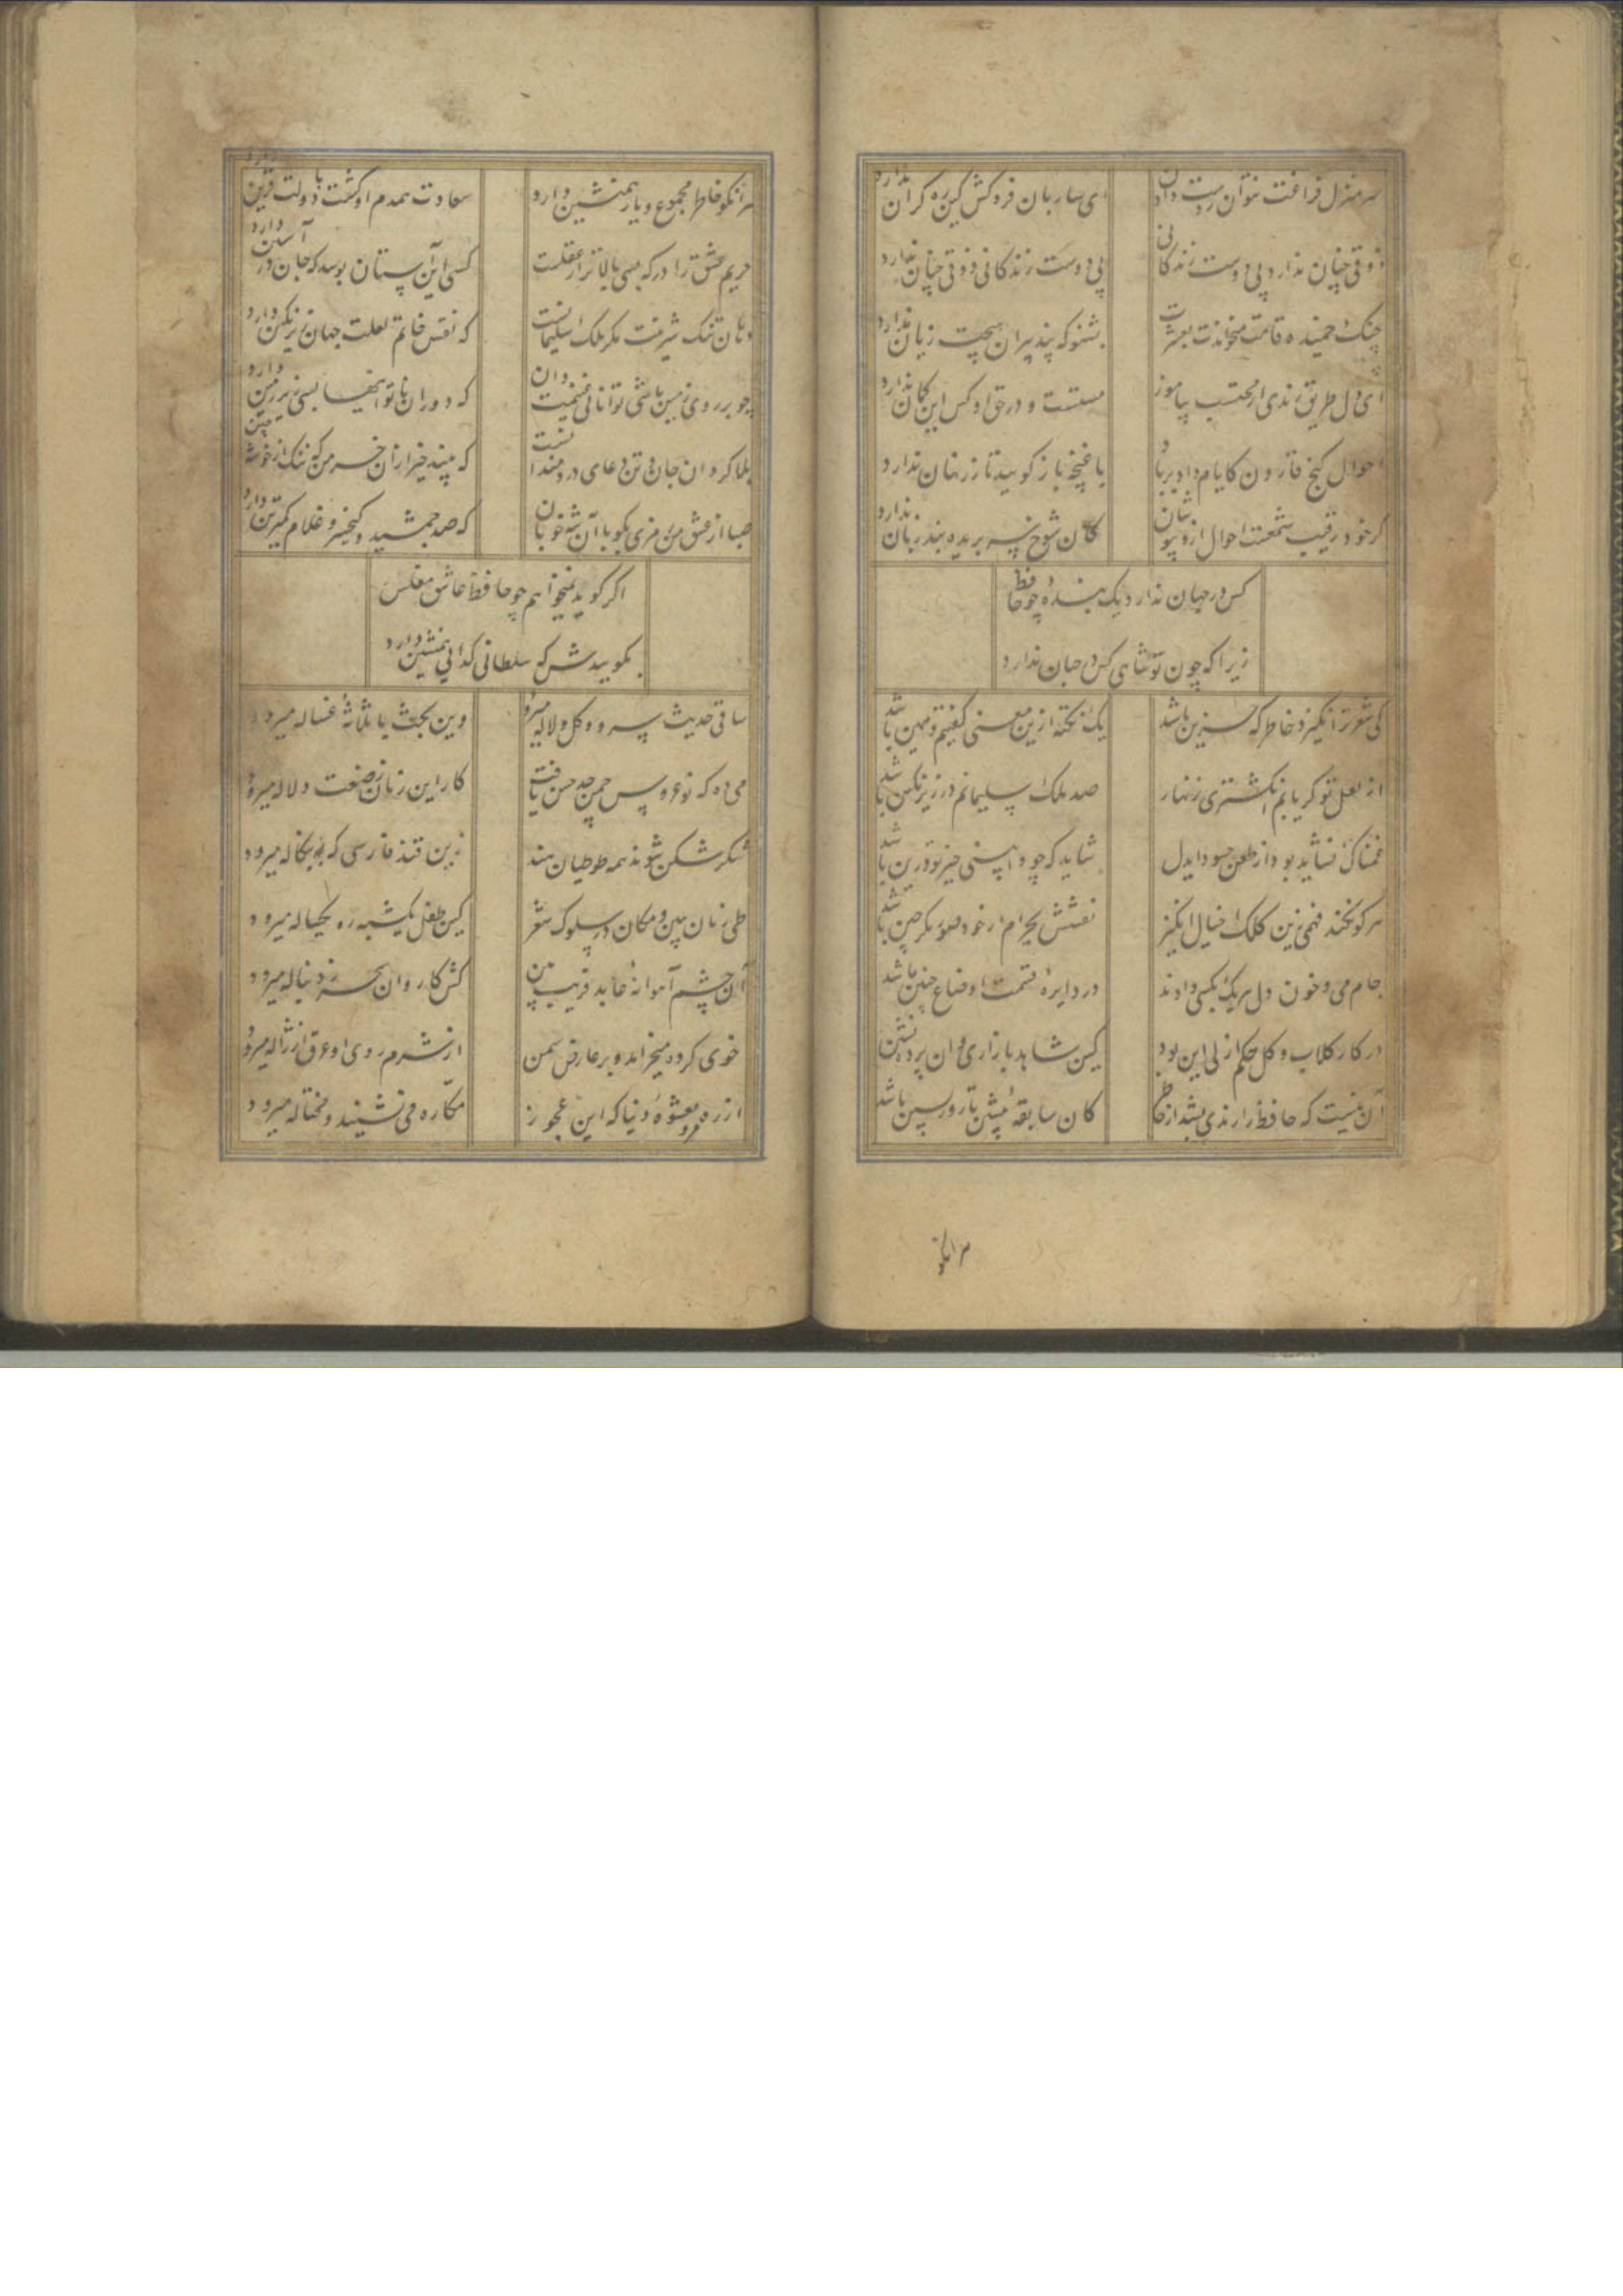 سر منزل فراغت نتوان ز دست دادن ای ساربان فروکش کین ره کران ندارد
ذوقی چنان ندارد بی دوست زندکانی بی دوست زندکانی ذوقی چنان ندارد
چنک خمیده قامت میخواندت بعشرت بشنو که پند پیران هیچت زیان ندارد
ای دل طریق رندی از محتسب بیاموز مستست و در حق او کس این کمان ندارد
احوال کنج قارون کایام داد بر باد با غنچه باز کویید تا زر نهان ندارد
کر خود رقیب شمعست احوال ازو بپوشان کان شوخ سر بریده بند زبان ندارد
کس در جهان ندارد یک بنده چو حافظ
زیرا که چون تو شاهی کس در جهان ندارد
کی شعر تر انکیزد خاطر که حزین باشد یک نکته ازین معنی کفتیم و همین باشد
از لعل تو کر یابم انکشتری زنهار صد ملک سلیمانم در زیر نکین باشد
غمناک نشاید بود از طعن حسود ایدل شاید که چو وا بینی خیر تو درین باشد
هر کو نکند فهمی زین کلک خیال انکیز نقشش بحرام ار خود صورتکر چین باشد
جام می و خون دل هر یک بکسی دادند در دایره قسمت اوضاع چنین باشد
در کار کلاب و کل حکم ازلی این بود کین شاهد بازاری وان پرده نشین باشد
آن نیست که حافظ را رندی بشد از خاطر کان سابقه پیشین تا روز پسین باشد
هر انکو
هر انکو خاطر مجموع و یار همنشین دارد سعادت همدم او کشت و دولت قرین دارد
حریم عشق را درکه بسی بالاتر از عقلست کسی این آستان بوسد که جان در آستین دارد
دهان تنک شیرینت مکر ملک سلیمانست که نقش خاتم لعلت جهان زیر نکین دارد
چو بر روی زمین باشی توانائی غنیمت دان که دوران ناتوانیها بسی زیر زمین دارد
بلا کردان جان و تن دعای دردمندانست که بیند خیر ازان خرمن که ننک از خوشه چین
صبا از عشق من رمزی بکو با آن شه خوبان که صد جمشید و کیخسرو غلام کمترین دارد
اکر کوید نمیخواهم چو حافظ عاشق مفلس
بکوییدش که سلطانی کدائی همنشین دارد
ساقی حدیث سرو و کل و لاله میرود وین بحث با ثلاثه غساله میرود
می ده که نو عروس چمن حد حسن یافت کار این زمان ز صنعت دلاله میرود
شکر شکن شوند همه طوطیان هند زین قند فارسی که به بنکاله میرود
طی زمان ببین و مکان در سلوک شعر کین طفل یکشبه ره یکساله میرود
آن چشم آهوانه عابد فریب بین کش کاروان سحر ز دنباله میرود
خوی کرده میخرامد و بر عارض سمن از شرم روی او عرق از ژاله میرود
از ره مرو بعشوه دنیا که این عجوز مکاره می نشیند و محتاله میرود